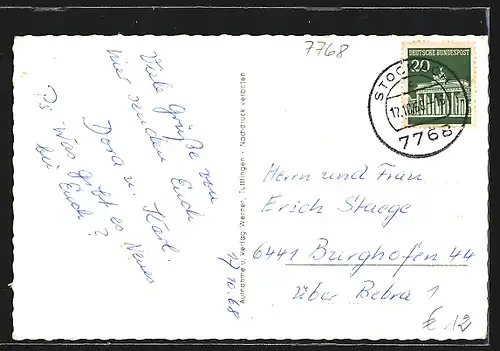 7768
Viele Grüße von
hier senden Euch
Dora u. Karl.
Ps Was gibt es Neues
bei Euch?
17.10.68
Aufnahme u. Verlag Werner, Tuttlingen · Nachdruck verboten
DEUTSCHE BUNDESPOST
20
STOC
7768
Herrn und Frau
Erich Staege
6441 Burghofen 44
über Bebra 1
€ 12